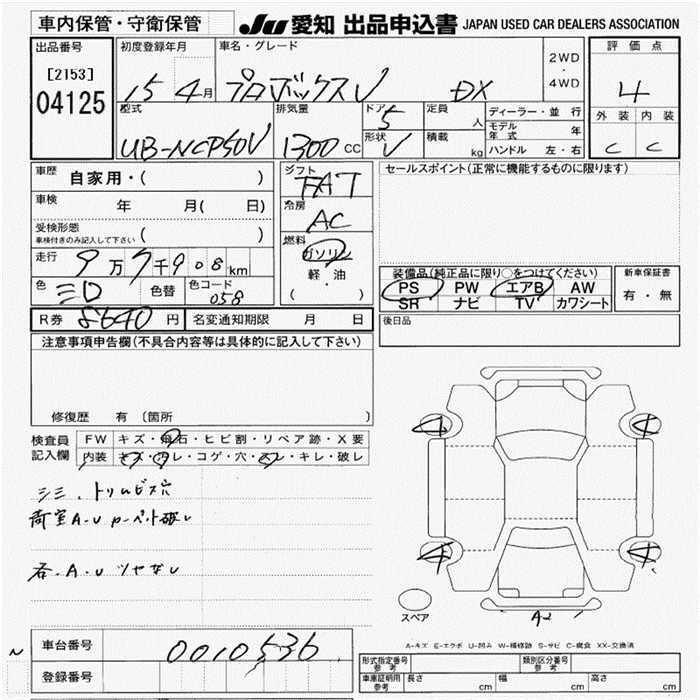 車内保管・守衛保管
JU 愛知 出品申込書 JAPAN USED CAR DEALERS ASSOCIATION
出品番号
[2153]
04125
初度登録年月
15 4月
車名・グレード
プロボックスV DX
2WD
・
4WD
評価点
4
外装 内装
C C
型式
UB-NCP50V
排気量
1300 CC
ドア
5
形状
V
定員
人
積載
kg
ディーラー・並行
モデル年式 年
ハンドル 左・右
車歴
自家用・( )
車検
年 月( 日)
受検形態
車検付きのみ記入して下さい ( )
走行
9万7千908km
色
色替
色コード
058
シフト
FAT
冷房
AC
燃料
ガソリン
軽・油
( )
セールスポイント(正常に機能するものに限ります)
装備品(純正品に限り○をつけてください)
PS PW エアB AW
SR ナビ TV カワシート
新車保証書
有・無
後日品
R券 8640円
名変通知期限 月 日
注意事項申告欄(不具合内容等は具体的に記入して下さい)
修復歴 有 〔箇所 〕
検査員
記入欄
FW キズ・飛石・ヒビ割・リペア跡・X要
内装 キズ・汚レ・コゲ・穴・スレ・キレ・破レ
シミ、トリムビス穴
荷室A.U P-ペット破レ
各.A.U ツヤなし
A
A
A
A
スペア
A2
A-キズ E-エクボ U-凹み W-補修跡 S-サビ C-腐食 XX-交換済
車台番号
0010536
登録番号
形式指定番号
参考
類別区分番号
参考
車庫証明用
参考
長さ cm
幅 cm
高さ cm